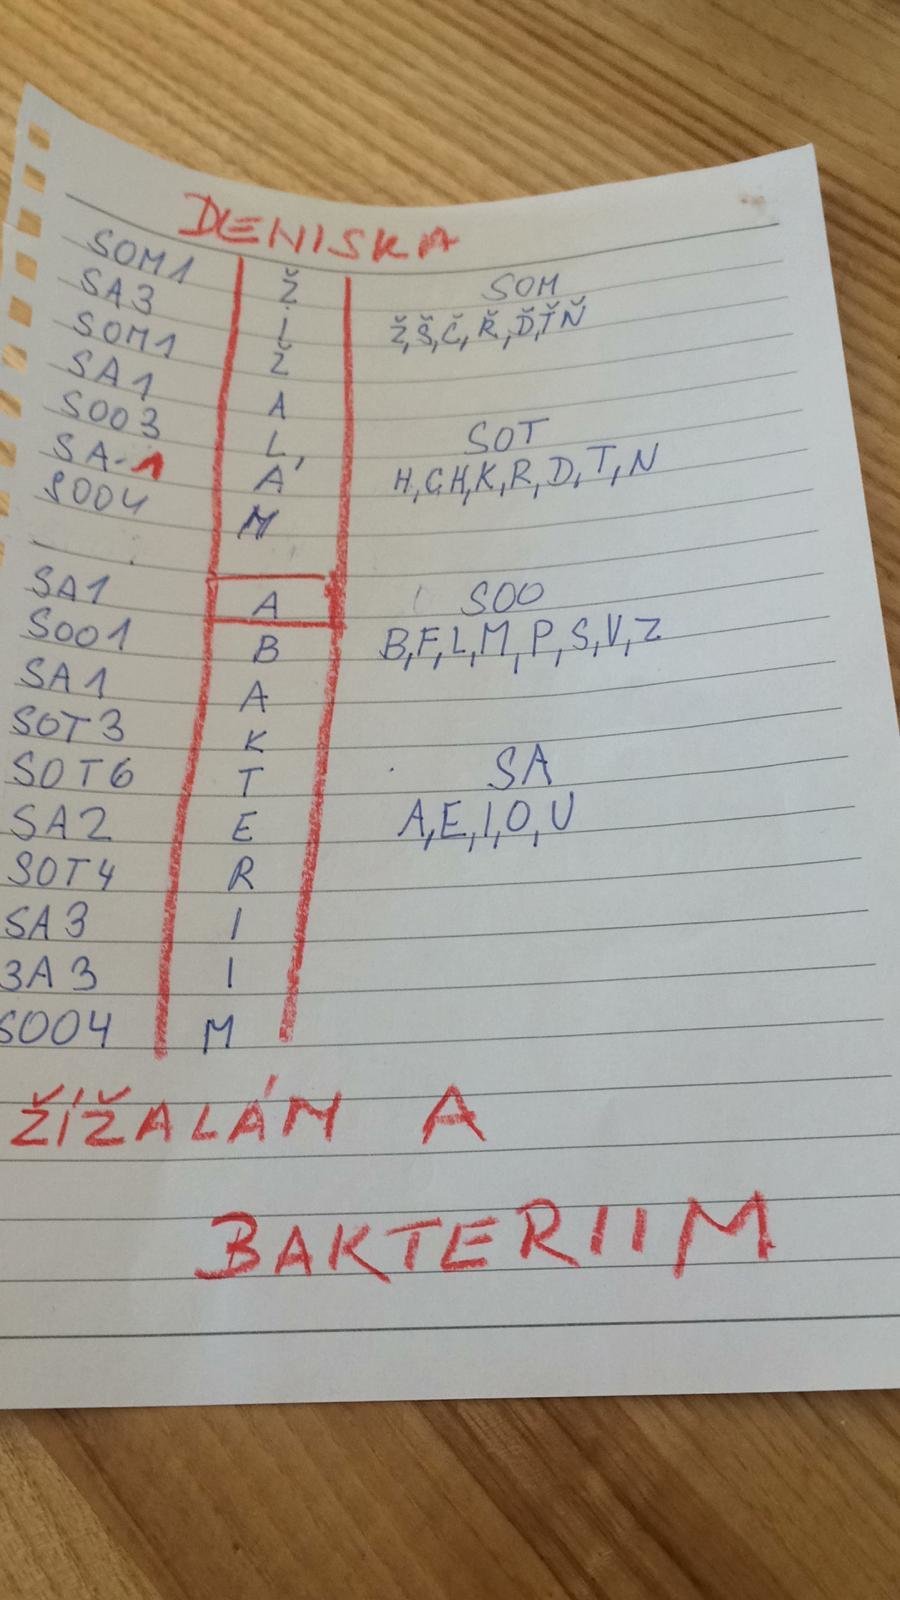 DENISKA
SOM1 Ž
SA3 I
SOM1 Ž
SA1 A
SOO3 L
SA-1 Á
SOO4 M
SOM
Ž,Š,Č,Ř,Ď,Ť,Ň
SOT
H,CH,K,R,D,T,N
SA1 A
SOO1 B
SA1 A
SOT3 K
SOT6 T
SA2 E
SOT4 R
SA3 I
SA3 I
SOO4 M
SOO
B,F,L,M,P,S,V,Z
SA
A,E,I,O,U
ŽÍŽALÁM A
BAKTERIIM